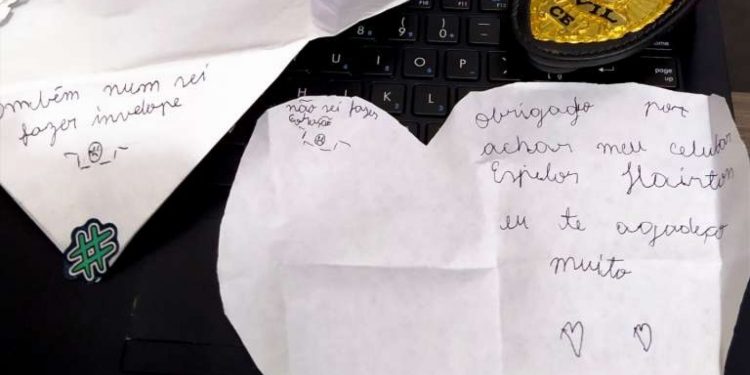 também num sei
fazer invelope
não sei fazer
coração
obrigado por
achar meu celular
Espetor Hairton
eu te agadeço
muito
VIL
CE
U I O P
H K L
page
up